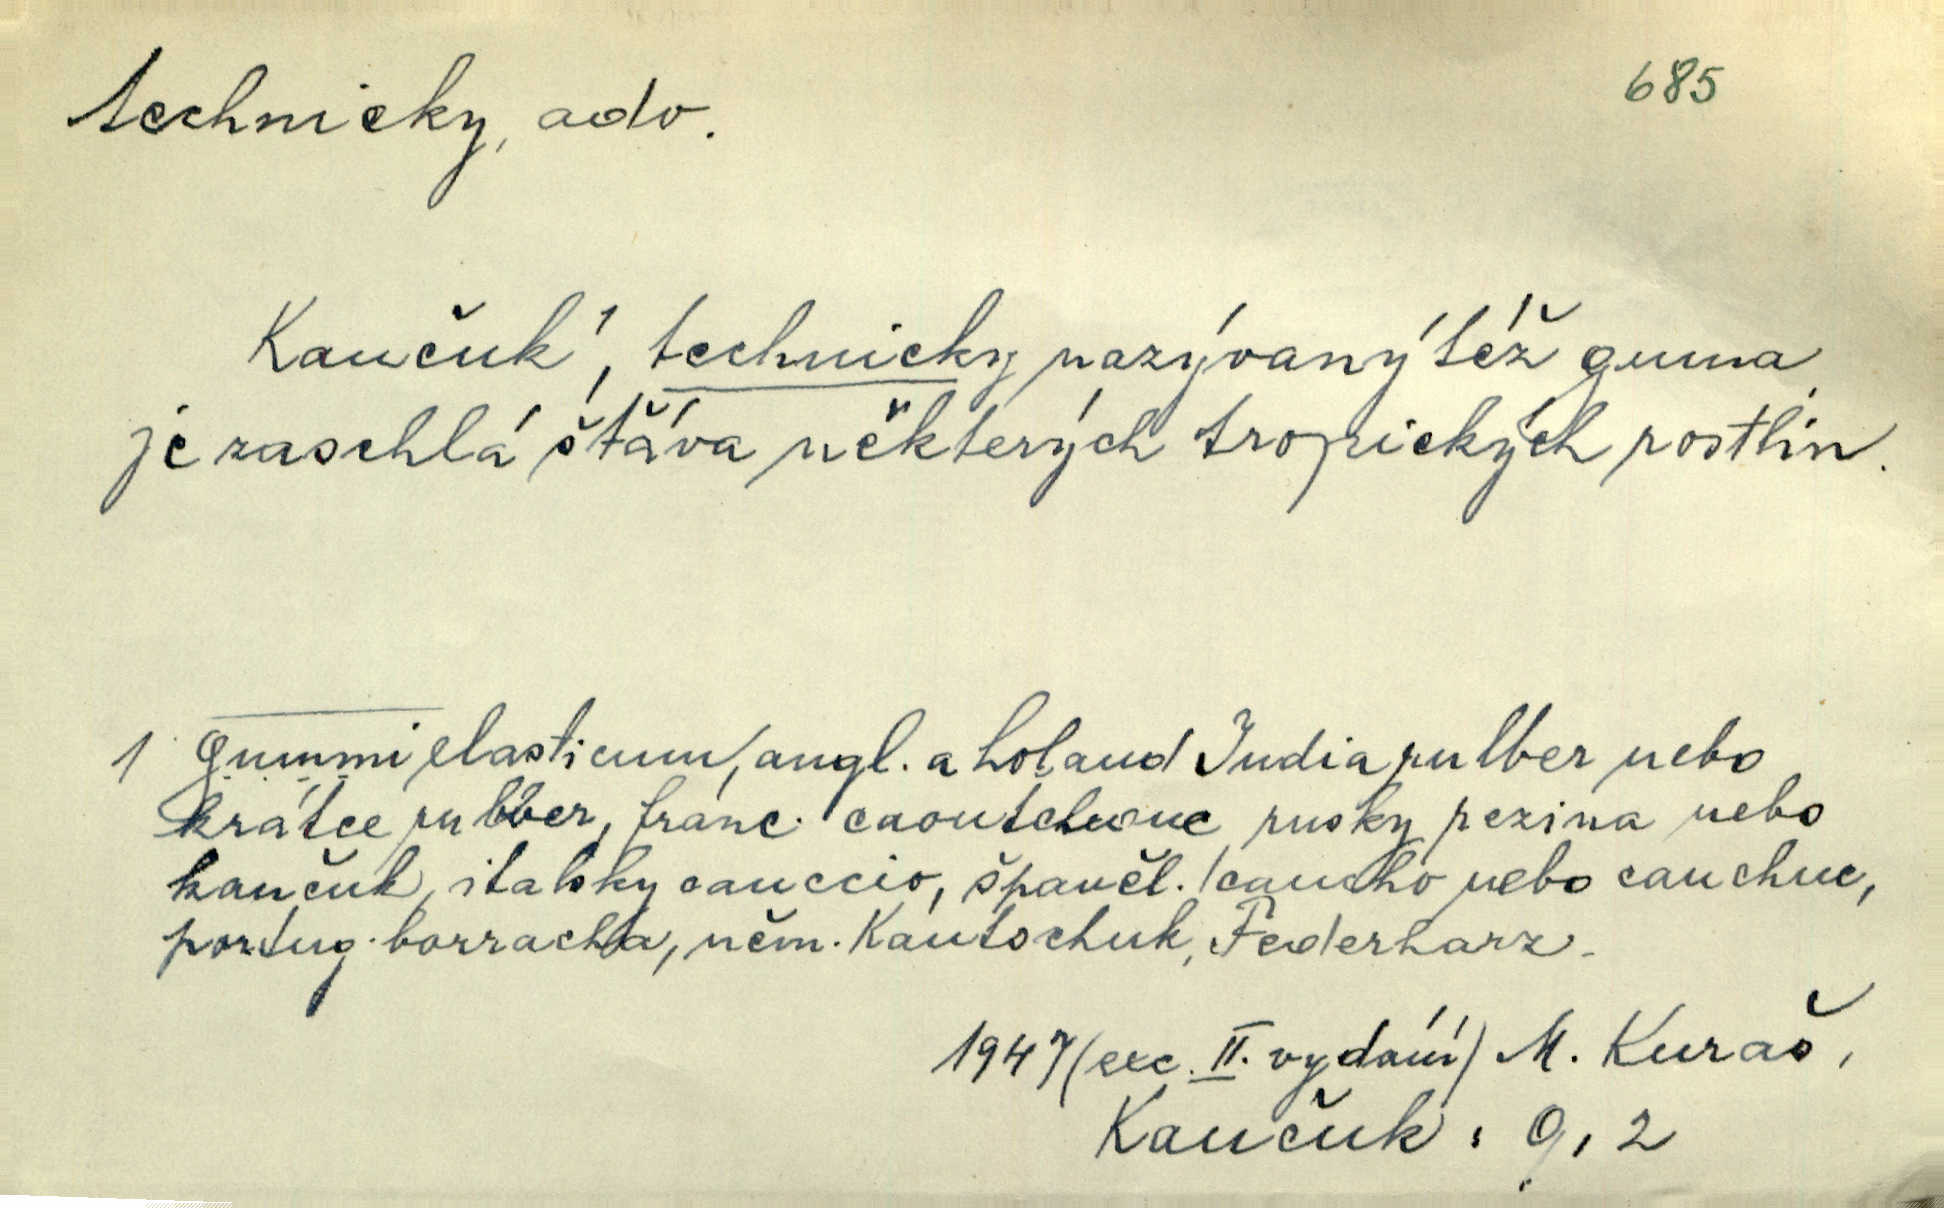 technicky, adv.
685
Kaučuk¹, technicky nazývaný též guma,
je zaschlá šťáva některých tropických rostlin.
1 Gummi elasticum, angl. a holand India rulber nebo
krátce rubber, franc. caoutchouc rusky rezina nebo
kaučuk, italsky cauccio, španěl. caucho nebo cauchuc,
portug. borracha, něm. Kautschuk, Federharz.
1947 (exc. II. vydání) M. Kuraš,
Kaučuk: 9, 2